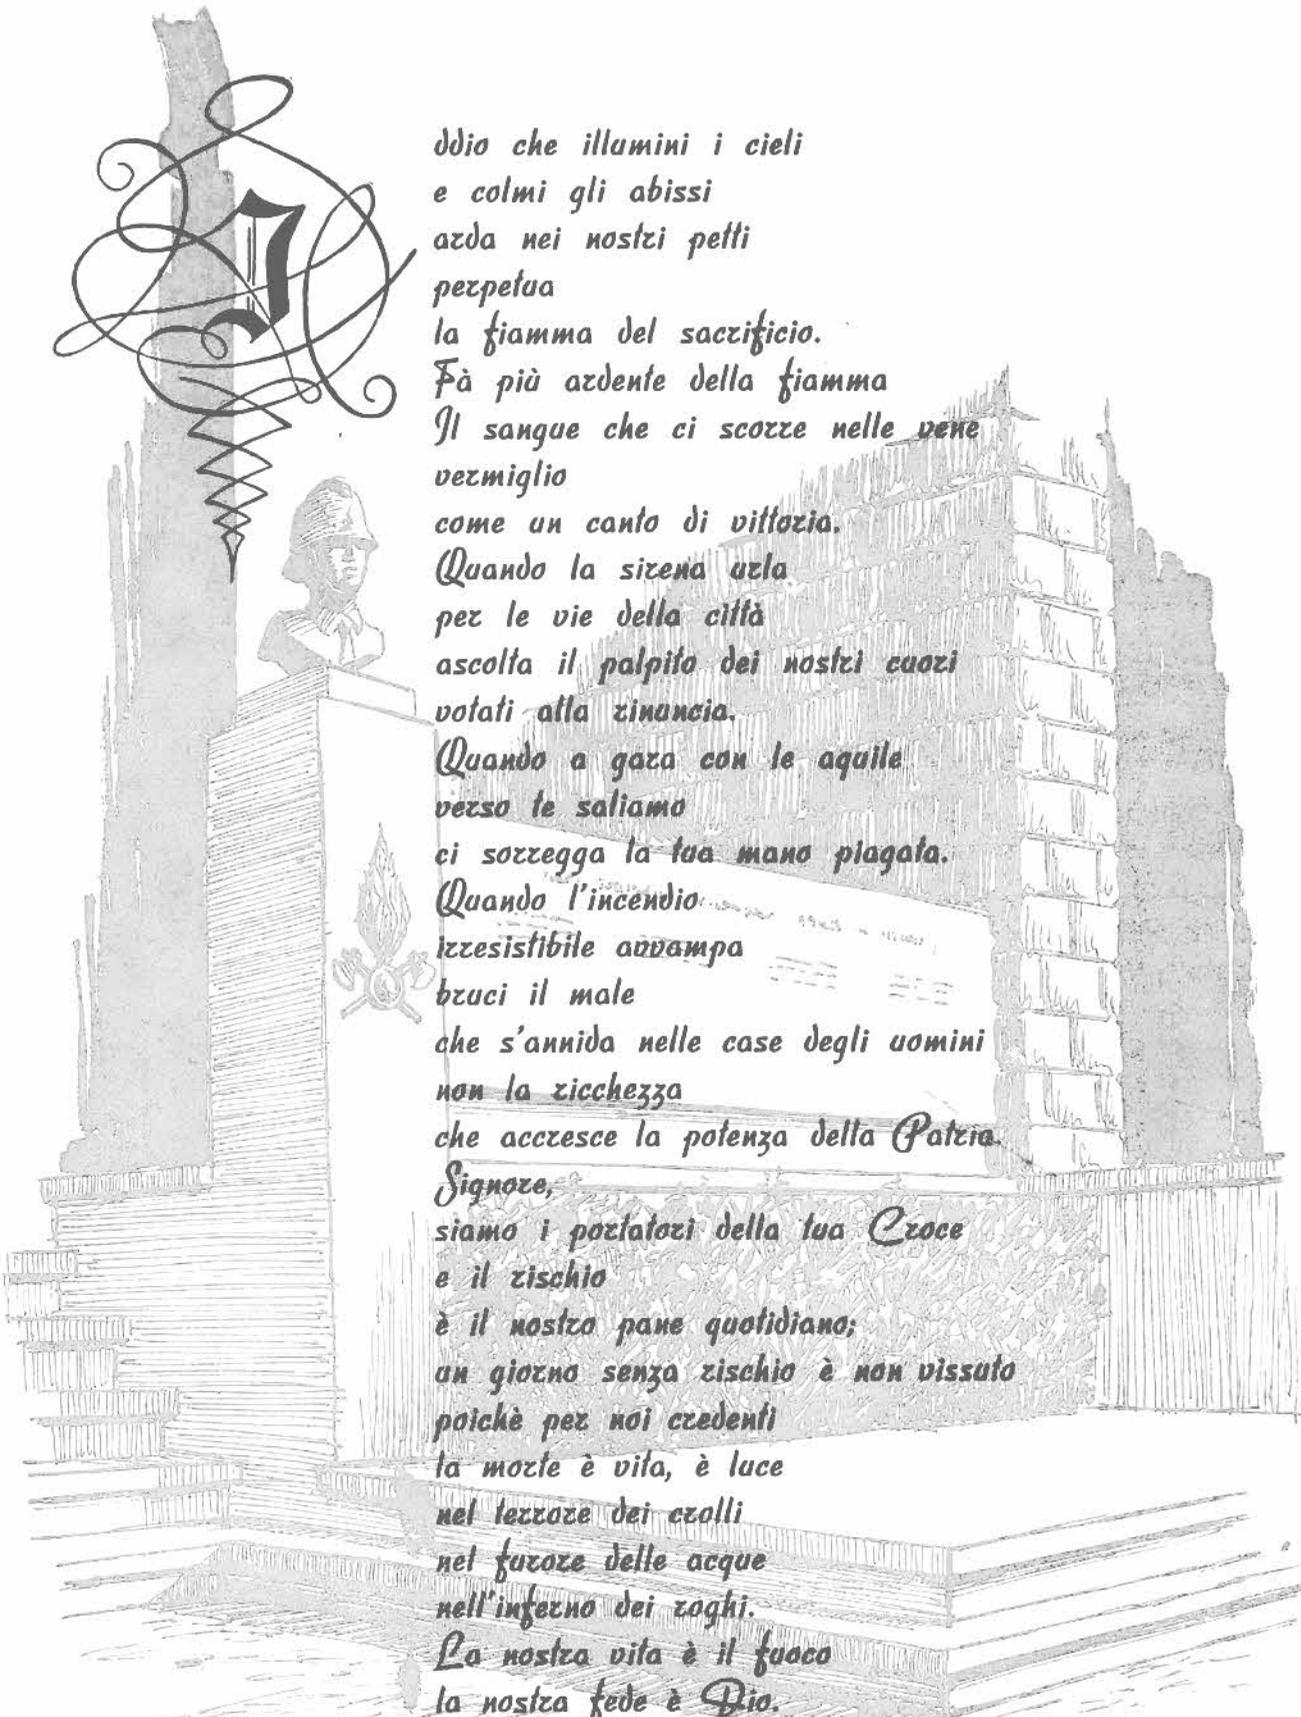 Iddio che illumini i cieli
e colmi gli abissi
arda nei nostri petti
perpetua
la fiamma del sacrificio.
Fà più ardente della fiamma
Il sangue che ci scorre nelle vene
vermiglio
come un canto di vittoria.
Quando la sirena urla
per le vie della città
ascolta il palpito dei nostri cuori
votati alla rinuncia.
Quando a gara con le aquile
verso te saliamo
ci sorregga la tua mano piagata.
Quando l'incendio
irresistibile avvampa
bruci il male
che s'annida nelle case degli uomini
non la ricchezza
che accresce la potenza della Patria.
Signore,
siamo i portatori della tua Croce
e il rischio
è il nostro pane quotidiano;
un giorno senza rischio è non vissuto
poichè per noi credenti
la morte è vita, è luce
nel terrore dei crolli
nel furore delle acque
nell'inferno dei roghi.
La nostra vita è il fuoco
la nostra fede è Dio.